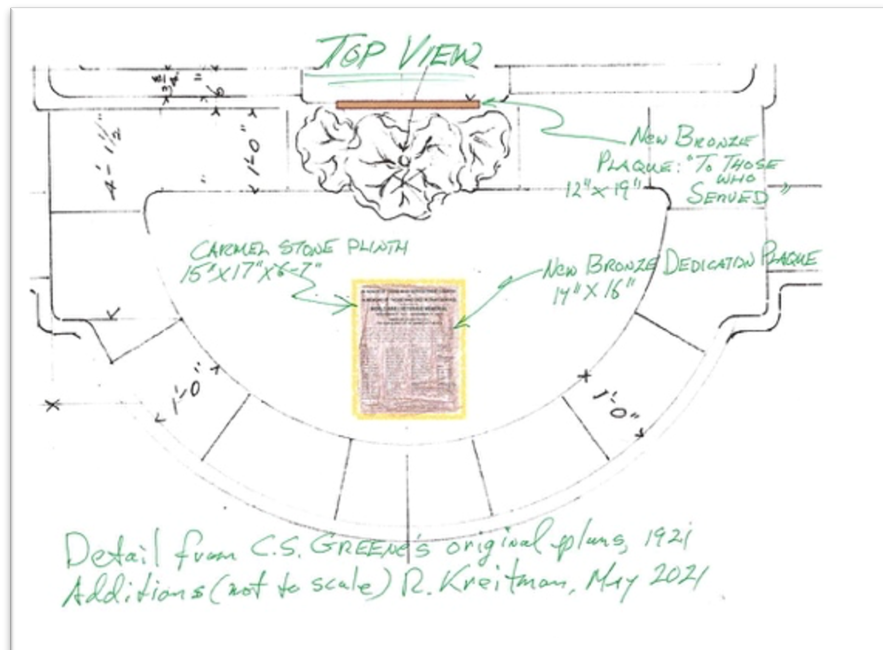 TOP VIEW
3/4"
6"
4'-1 1/2"
1'-0"
NEW BRONZE
PLAQUE: "TO THOSE
WHO
12"X19" SERVED"
CARMEL STONE PLINTH
15"X17"X6-7"
NEW BRONZE DEDICATION PLAQUE
14" X 16"
1'-0"
1'-0"
Detail from C.S. GREENE's original plans, 1921
Additions (not to scale) R. Kreitman, May 2021